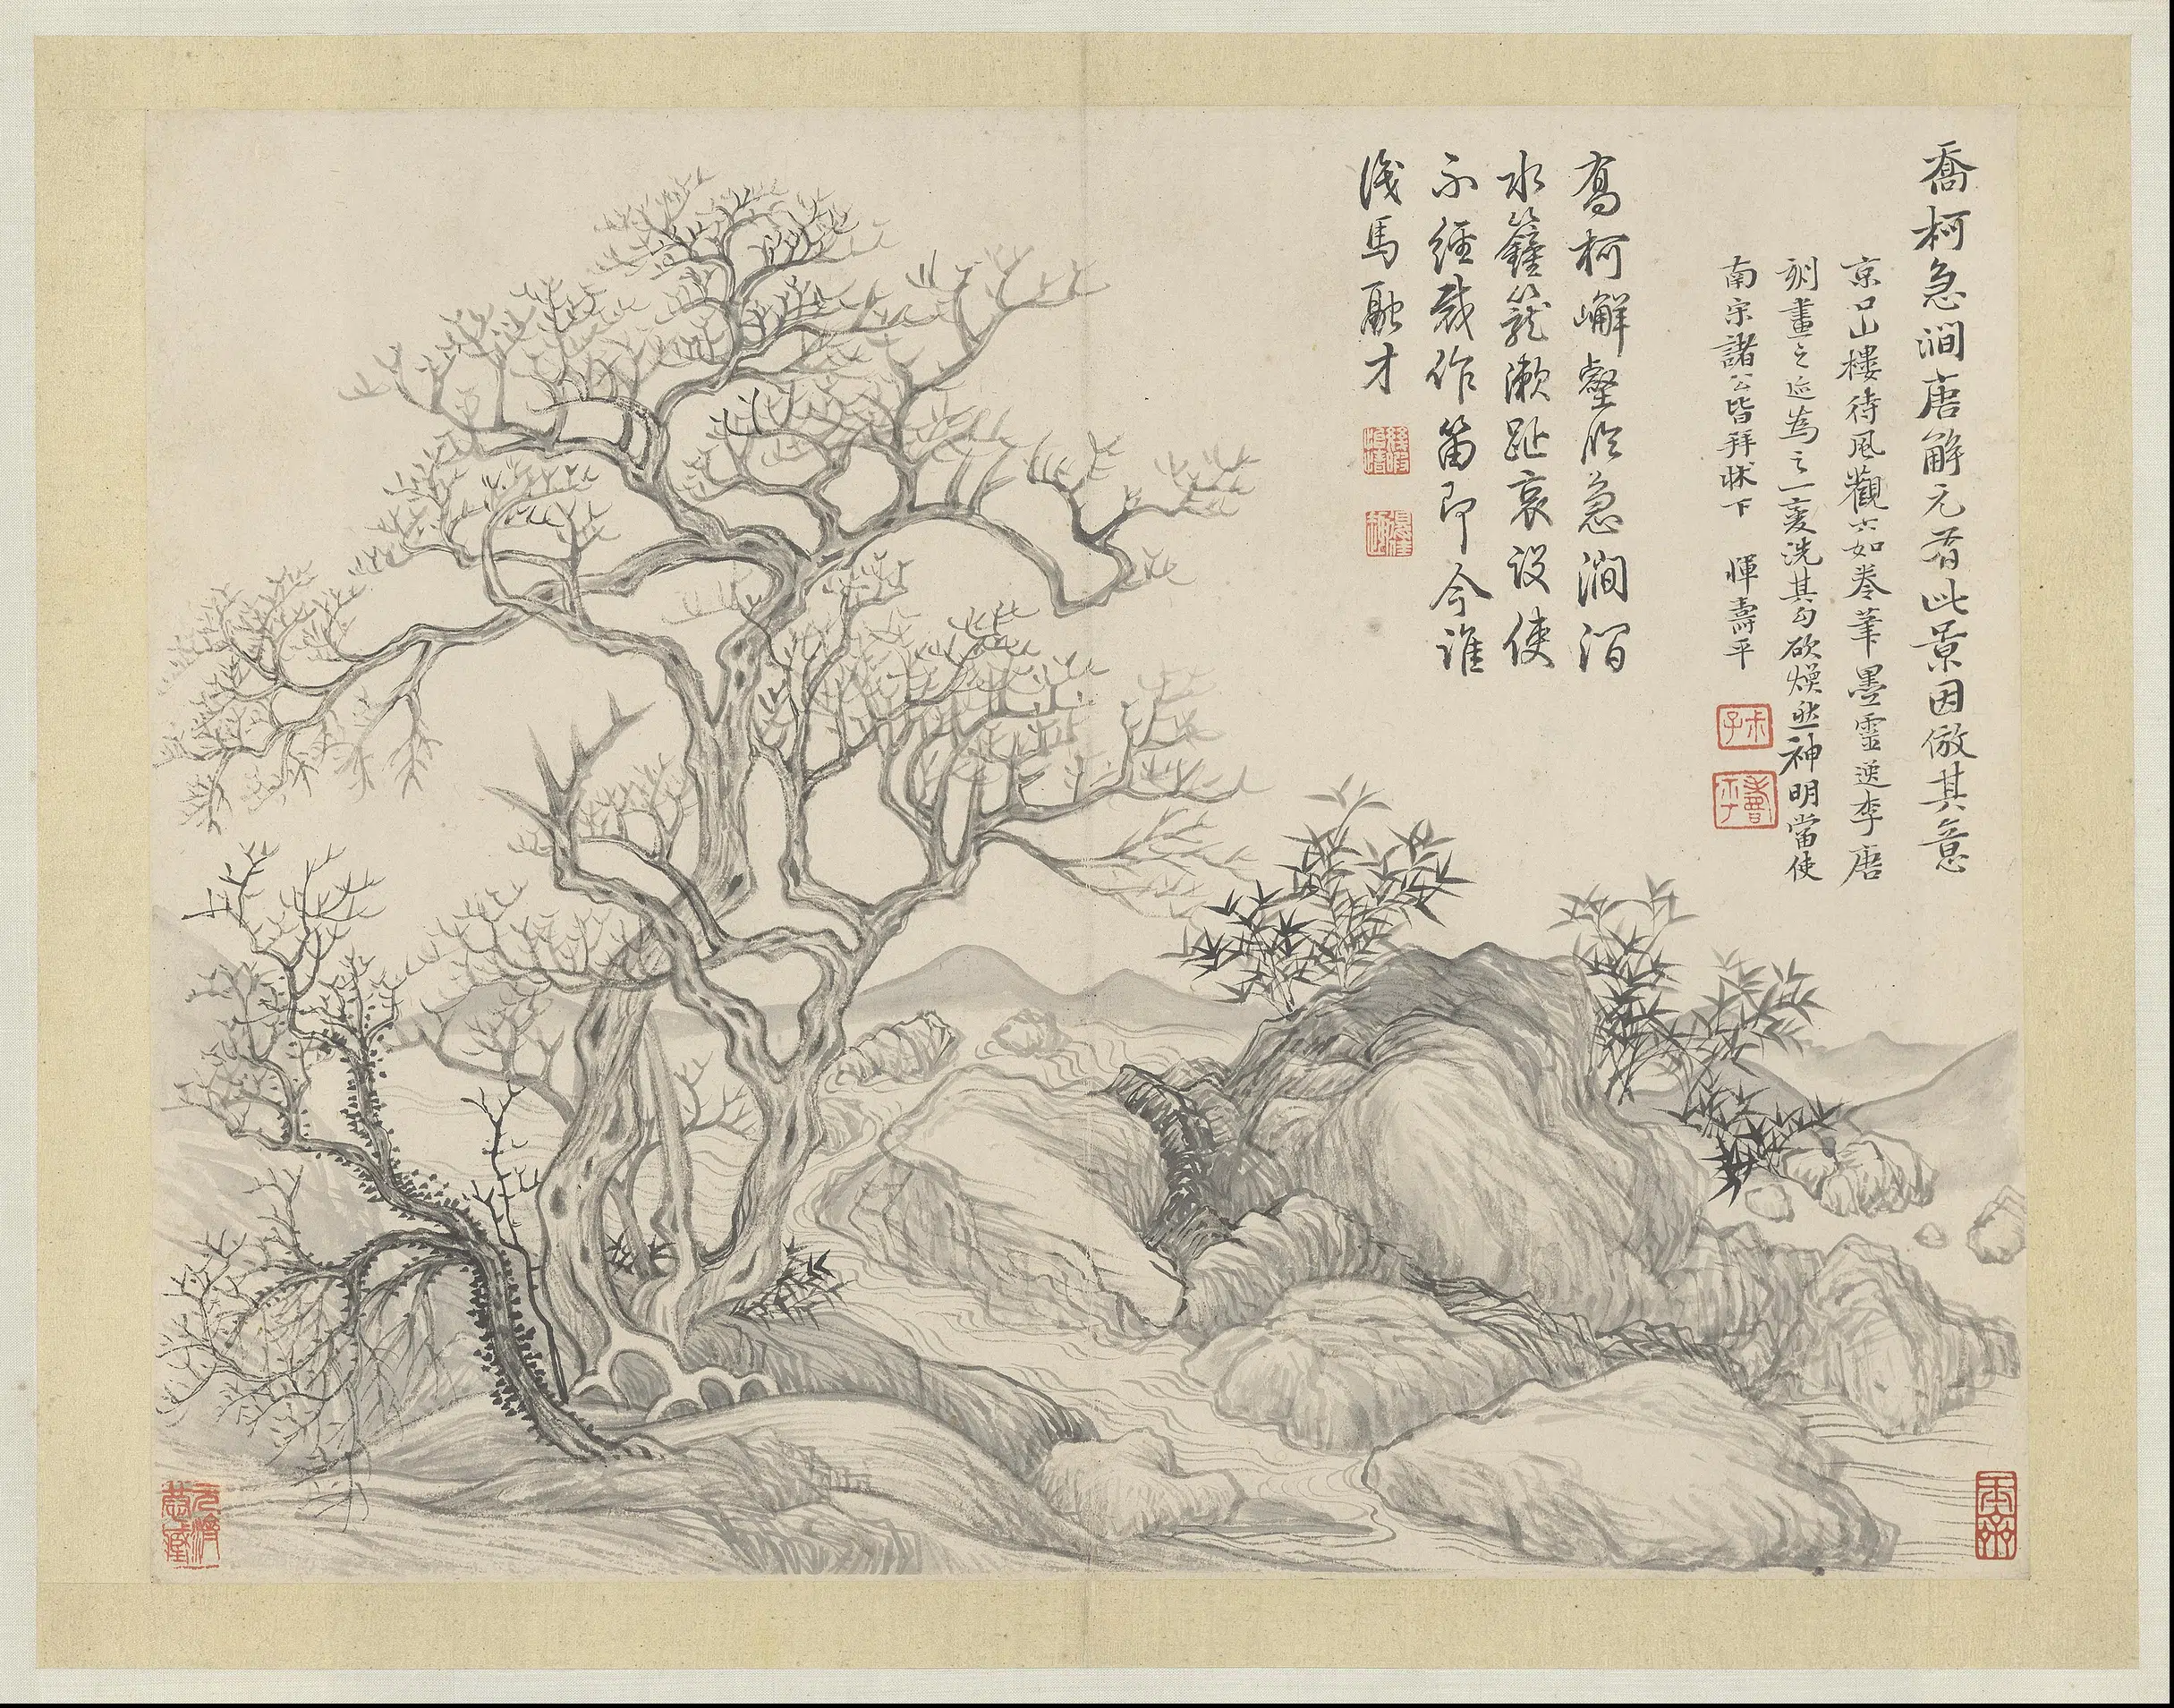 喬柯急澗唐解元有此景因倣其意
京口山樓待風觀六如卷筆墨靈逸李唐
刻畫之迹為之一變洗其勾砍煥然神明當使
南宗諸公皆拜牀下 惲壽平
壽平
高柯嶰壑臨急澗湝
水籦籠漱趾哀設使
不經裁作笛即今誰
識馬融才